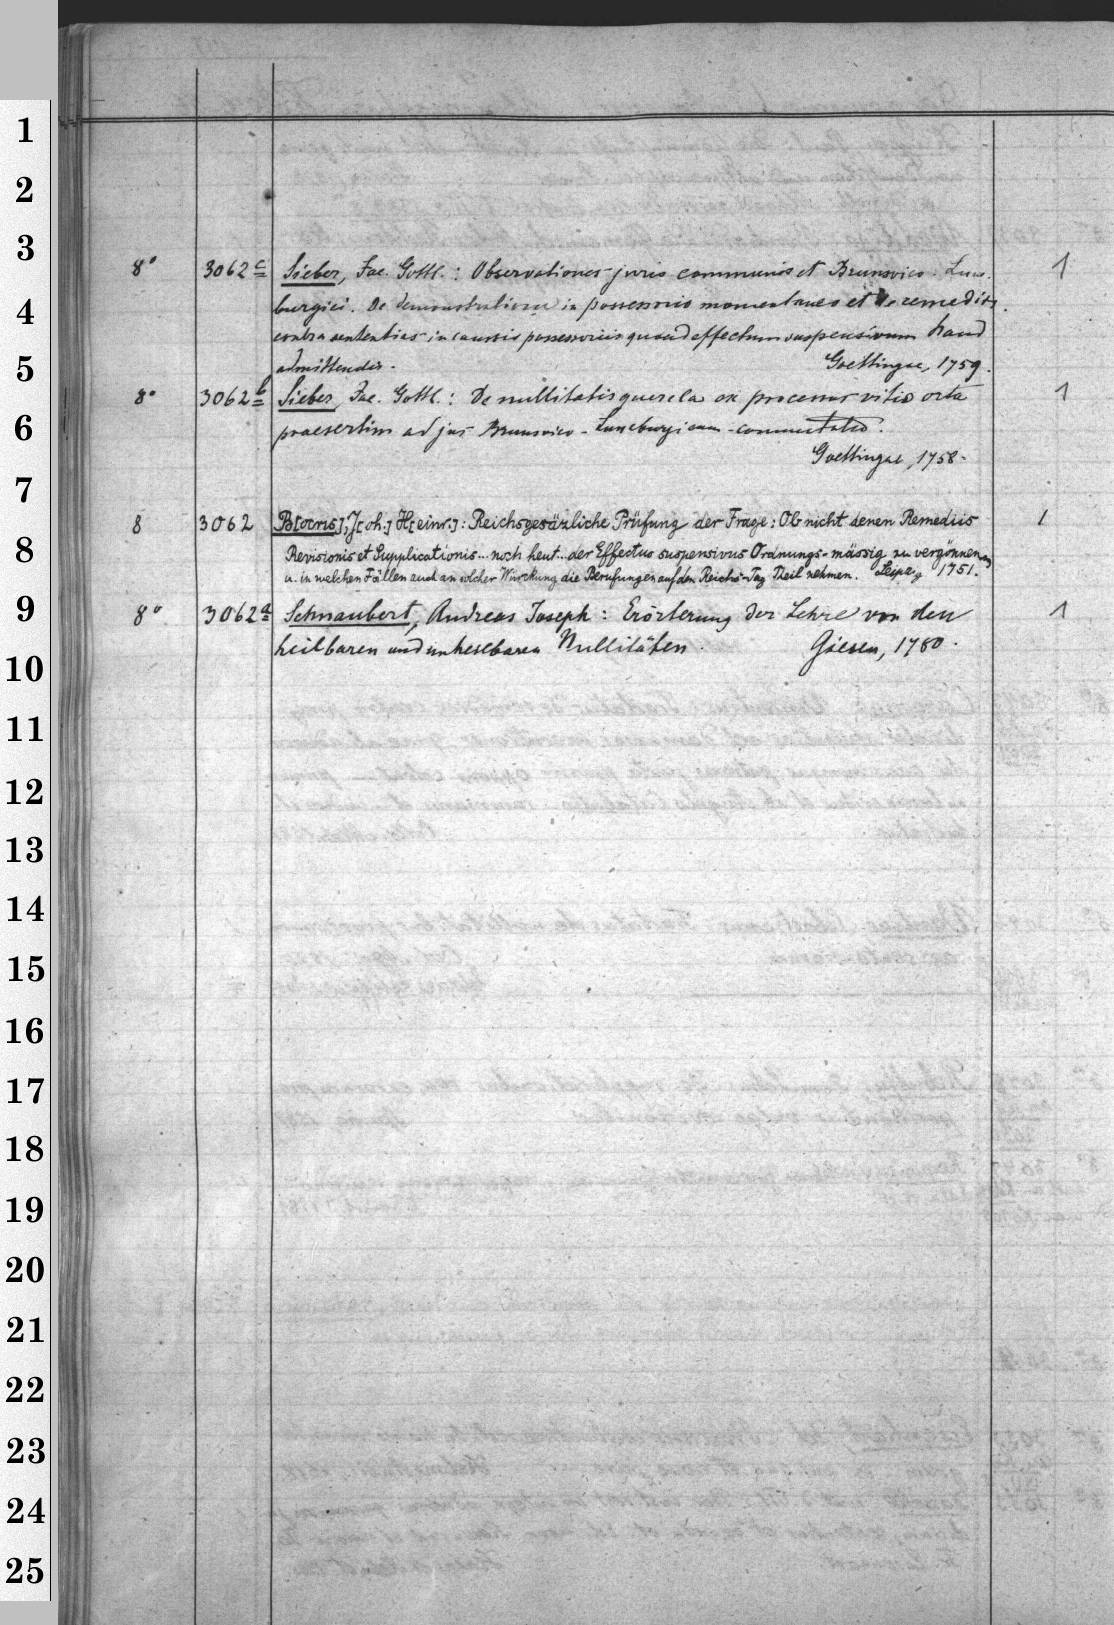 1
2
3
8° 3062 c Sieber, Jac. Gottl.: Observationes juris communis et Brunsvico-Lune-
4
burgici. De demonstratione in possessorio momentaneo et de remediis
contra sententias in caussis possessoriis quoad effectum suspensivum haud
5
admittendis. Goettingae, 1759. 1
8° 3062 b Sieber, Jac. Gottl.: De nullitatis querela ex processus vitio orta 1
6
praesertim ad jus Brunsvico-Luneburgicum commentatio.
Goettingae, 1758.
7
8 3062 B[ocris], J[oh.] H[einr.]: Reichsgesäzliche Prüfung der Frage: Ob nicht denen Remediis 1
8
Revisionis et Supplicationis... noch heut... der Effectus suspensivus Ordnungs-mässig zu vergönnen
u. in welchen Fällen auch an solcher Würckung die Berufungen auf den Reichs-Tag Theil nehmen. Leipzg 1751.
9
8° 3062 a Schnaubert, Andreas Joseph: Erörterung der Lehre von den 1
heilbaren und unheilbaren Nullitäten. Giesen, 1780.
10
11
12
13
14
15
16
17
18
19
20
21
22
23
24
25